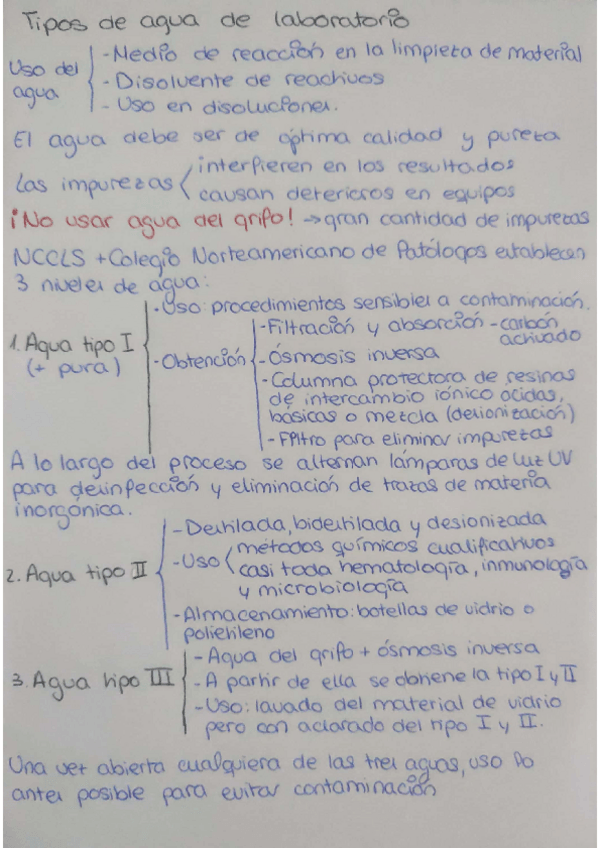 Tipos de agua de laboratorio
Uso del agua
- Medio de reacción en la limpieza de material
- Disolvente de reactivos
- Uso en disoluciones.
El agua debe ser de óptima calidad y pureza
Las impurezas
interfieren en los resultados
causan deterioros en equipos
¡No usar agua del grifo! → gran cantidad de impurezas
NCCLS + Colegio Norteamericano de Patólogos establecen
3 niveles de agua:
1. Agua tipo I
(+ pura)
- Uso: procedimientos sensibles a contaminación.
- Obtención
- Filtración y absorción - carbón
activado
- Ósmosis inversa
- Columna protectora de resinas
de intercambio iónico ácidas,
básicas o mezcla (desionización)
- Filtro para eliminar impurezas
A lo largo del proceso se alternan lámparas de luz UV
para desinfección y eliminación de trazas de materia
inorgánica.
2. Agua tipo II
- Destilada, bidestilada y desionizada
- Uso
métodos químicos cualificativos
casi toda hematología, inmunología
y microbiología
- Almacenamiento: botellas de vidrio o
polietileno
3. Agua tipo III
- Agua del grifo + ósmosis inversa
- A partir de ella se obtiene la tipo I y II
- Uso: lavado del material de vidrio
pero con aclarado del tipo I y II.
Una vez abierta cualquiera de las tres aguas, uso lo
antes posible para evitar contaminación